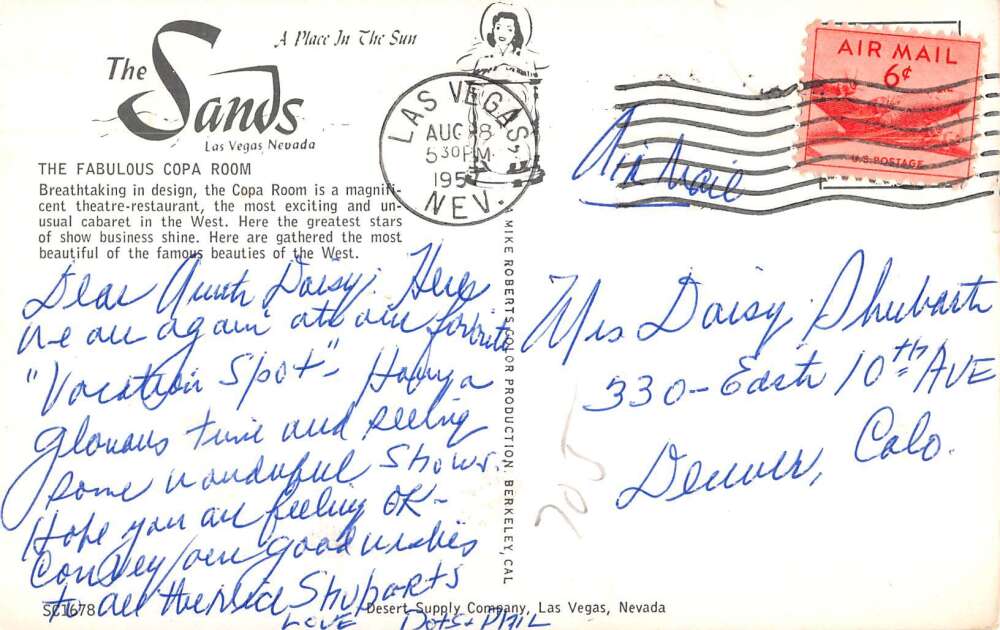 The Sands
A Place In The Sun
Las Vegas, Nevada
THE FABULOUS COPA ROOM
Breathtaking in design, the Copa Room is a magnifi-
cent theatre-restaurant, the most exciting and un-
usual cabaret in the West. Here the greatest stars
of show business shine. Here are gathered the most
beautiful of the famous beauties of the West.
LAS VEGAS,
AUG 8
5 30 PM
195
NEV.
AIR MAIL
6¢
U.S. POSTAGE
Air Mail
Dear Aunt Daisy: Here
we are again at our favorite
"Vacation Spot" - Having a
glorious time and seeing
some wonderful shows.
Hope you are feeling OK -
Convey our good wishes
to all the Shubarts
Love Dots & Phil
Mrs Daisy Shubarth
330 - East 10th AVE
Denver, Colo.
705
A MIKE ROBERTS COLOR PRODUCTION, BERKELEY, CAL
SC1678
Desert Supply Company, Las Vegas, Nevada